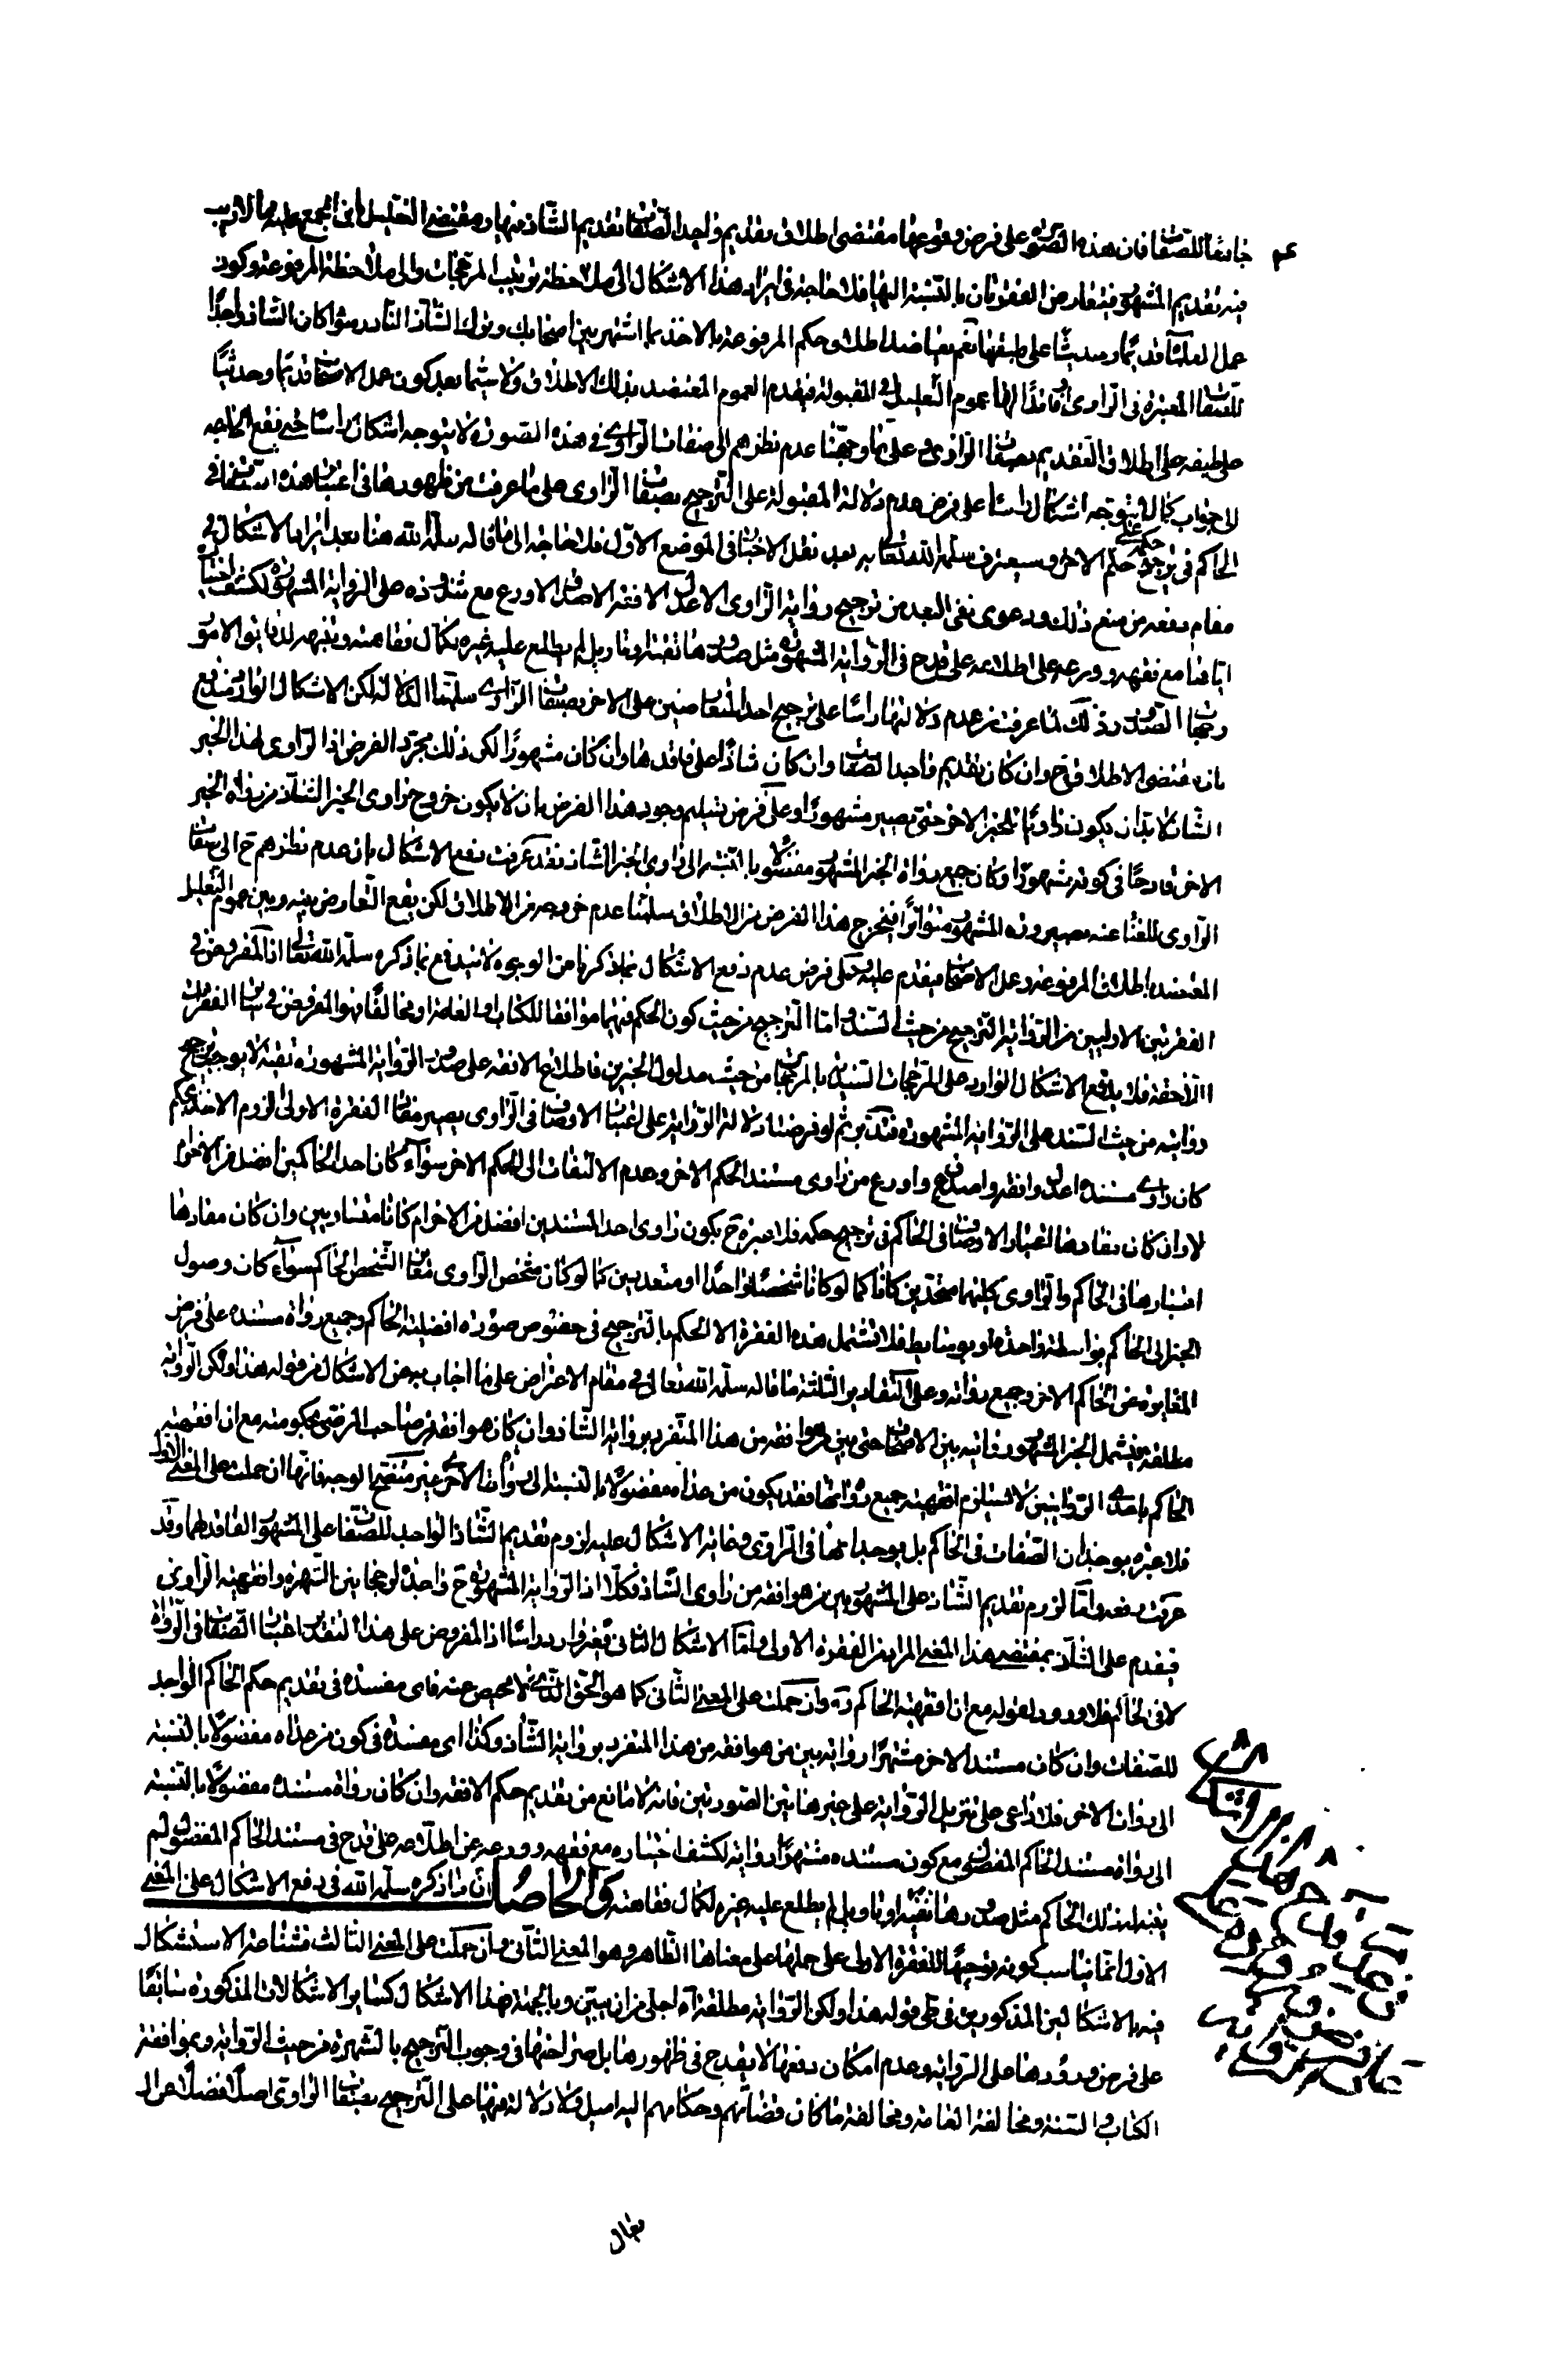 جامعا للصفات فان هذه الصورة على فرض وقوعها مقتضى اطلاق تقديم واجد الصفات تقديم الشاذ منها ومقتضى التعليل بان المجمع عليه مما لا ريب
فيه تقديم المشهور فيتعارض الفقرتان بالنسبة اليها فلا حاجة في ايراد هذا الاشكال الى ملاحظة ترتيب المرجحات والى ملاحظة المرفوعة وكون
عمل العلماء قديما وحديثا على طبقها نعم يعاضد اطلاق حكم المرفوعة بالاخذ بما اشتهر بين اصحابك وترك الشاذ النادر سواء كان الشاذ واجدا
للصفات المعتبرة في الراوى او فاقدا لها عموم التعليل في المقبولة فيقدم العموم المعتضد بذلك الاطلاق ولا سيما بعد كون عمل الاصحاب قديما وحديثا
على طبقه على اطلاق التقديم بصفات الراوى وعلى ما وجهنا عدم نظرهم الى صفات الراوى في هذه الصورة لا يتوجه اشكال راسا حتى يقع الحاجة
الى جواب كما لا يتوجه اشكال راسا على فرض عدم دلالة المقبولة على الترجيح بصفات الراوى على ما عرفت من ظهورها في اعتبار هذه الصفات في
الحاكم في ترجيح حكمه على حكم الاخر وسيعترف سلمه الله تعالى به بعد نقل الاخبار في الموضع الاول فلا حاجة الى ما قاله سلمه الله هنا بعد ايراد الاشكال في
مقام دفعه من منع ذلك ودعوى نفى البعد من ترجيح رواية الراوى الاعدل الافقه الاصدق الاورع مع شذوذه على الرواية المشهورة لكشف اختياره
اياها مع فقهه وورعه على اطلاعه على قدح في الرواية المشهورة مثل صدورها تقية او تاويل لم يطلع عليه غيره لكمال فقاهته وتنبهه لدقايق الامور
وجهات الصدور وذلك لما عرفت من عدم دلالتها راسا على ترجيح احد المتعارضين على الاخر بصفات الراوى سلمنا الدلالة لكن الاشكال الوارد مندفع
بان مقتضى الاطلاق ح وان كان تقديم واجد الصفات وان كان شاذا على فاقدها وان كان مشهورا لكن ذلك مجرد الفرض اذ الراوى لهذا الخبر
الشاذ لا بد ان يكون راويا للخبر الاخر حتى يصير مشهورا وعلى فرض تسليم وجود هذا الفرض بان لا يكون خروج راوى الخبر الشاذ من رواة الخبر
الاخر قادحا في كونه مشهورا وكان جميع رواة الخبر المشهور مفضولا بالنسبة الى راوى الخبر الشاذ فقد عرفت دفع الاشكال بان عدم نظرهم ح الى صفات
الراوى للغناء عنه بصيرورة المشهور متواترا فيخرج هذا الفرض من الاطلاق سلمنا عدم خروجه من الاطلاق لكن يقع التعارض بينه وبين عموم التعليل
المعتضد باطلاق المرفوعة وعمل الاصحاب فيقدم عليه وعلى فرض عدم دفع الاشكال بما ذكرنا من الوجوه لا يندفع بما ذكره سلمه الله تعالى اذ المفروض في
الفقرتين الاوليين من الرواية الترجيح من حيث السند واما الترجيح من حيث كون الحكم فيهما موافقا للكتاب او العامة او مخالفا فهو المفروض في بيان الفقرات
اللاحقة فلا يدفع الاشكال الوارد على المرجحات السندية بالمرجحات من حيث مدلول الخبرين فاطلاع الافقه على صدور الرواية المشهورة تقية لا يوجب ترجيح
روايته من حيث السند على الرواية المشهورة فتدبر ثم لو فرضنا دلالة الرواية على اعتبار الاوصاف في الراوى يصير مفاد الفقرة الاولى لزوم الاخذ بحكم
كان راوى مستنده اعدل وافقه واصدق واورع من راوى مستند الحكم الاخر وعدم الالتفات الى الحكم الاخر سواء كان احد الحاكمين افضل من الاخر ام
لا وان كان مفادها اعتبار الاوصاف في الحاكم في ترجيح حكمه فلا عبرة ح بكون راوى احد المستندين افضل من الاخر ام كانا متساويين وان كان مفادها
اعتبارها في الحاكم والراوى كليهما متحدين كانا كما لو كانا شخصا واحدا او متعددين كما لو كان شخص الراوى مغاير الشخص الحاكم سواء كان وصول
الخبر الى الحاكم بواسطة واحدة او بوسايط فلا تشمل هذه الفقرة الا الحكم بالترجيح في خصوص صورة افضلية الحاكم وجميع رواة مستنده على فرض
المغايرة عن الحاكم الاخر وجميع رواته وعلى التقادير الثلثة ما قاله سلمه الله تعالى في مقام الاعتراض على ما اجاب به عن الاشكال من قوله هذا ولكن الرواية
مطلقة فيشمل الخبر المشهور روايته بين الاصحاب حتى بين من هو افقه من هذا المتفرد برواية الشاذ وان كان هو افقه من صاحبه المرضى بحكومته مع ان افقهية
الحاكم باحدى الروايتين لا تستلزم افقهية جميع رواتها فقد يكون من عداه مفضولا بالنسبة الى رواة الاخرى غير متضح الوجه فانها ان حملت على المعنى الاول
فلا عبرة بوجدان الصفات في الحاكم بل بوجدانها في الراوى وغاية الاشكال عليه لزوم تقديم الشاذ الواجد للصفات على المشهور الفاقد لها وقد
عرفت دفعه واما لزوم تقديم الشاذ على المشهور بين من هو افقه من راوى الشاذ فكلا اذ الرواية المشهورة ح واجدة لرجحانين الشهرة وافقهية الراوى
فيقدم على الشاذ بمقتضى هذا المعنى المراد من الفقرة الاولى واما الاشكال الثاني فغير وارد راسا اذ المفروض على هذا التقدير اعتبار الصفات في الرواة
لا في الحاكم فلا ورود لقوله مع ان افقهية الحاكم آه وان حملت على المعنى الثاني كما هو الحق الذى لا محيص عنه فاى مفسدة في تقديم حكم الحاكم الواجد
للصفات وان كان مستند الاخر مشتهرا روايته بين من هو افقه من هذا المتفرد برواية الشاذ وكذا اى مفسدة في كون من عداه مفضولا بالنسبة
الى رواة الاخرى فلا داعى على تنزيل الرواية على غير هاتين الصورتين فانه لا مانع من تقديم حكم الافقه وان كان رواة مستنده مفضولا بالنسبة
الى رواة مستند الحاكم المفضول ومع كون مستنده مشتهرا روايته لكشف اختياره مع فقهه وورعه عن اطلاعه على قدح في مستند الحاكم المفضول لم
يتنبه لذلك الحاكم مثل صدورها تقية او تاويل لم يطلع عليه غيره لكمال فقاهته والحاصل ان ما ذكره سلمه الله في دفع الاشكال على المعنى
الاول انما يناسب كونه توجيها للفقرة الاولى على حملها على معناها الظاهر وهو المعنى الثاني وان حملت على المعنى الثالث فشناعة الاستشكال
فيه بالاشكالين المذكورين في طى قوله هذا ولكن الرواية مطلقة آه اجلى من ان يبين وبالجملة هذا الاشكال كساير الاشكالات المذكورة سابقا
على فرض ورودها على الرواية وعدم امكان دفعها لا يقدح في ظهورها بل صراحتها في وجوب الترجيح بالشهرة من حيث الرواية وبموافقة
الكتاب والسنة ومخالفة العامة ومخالفة ما كان قضاتهم وحكامهم اليه اميل ولا دلالة فيها على الترجيح بصفات الراوى اصلا فضلا عن ال